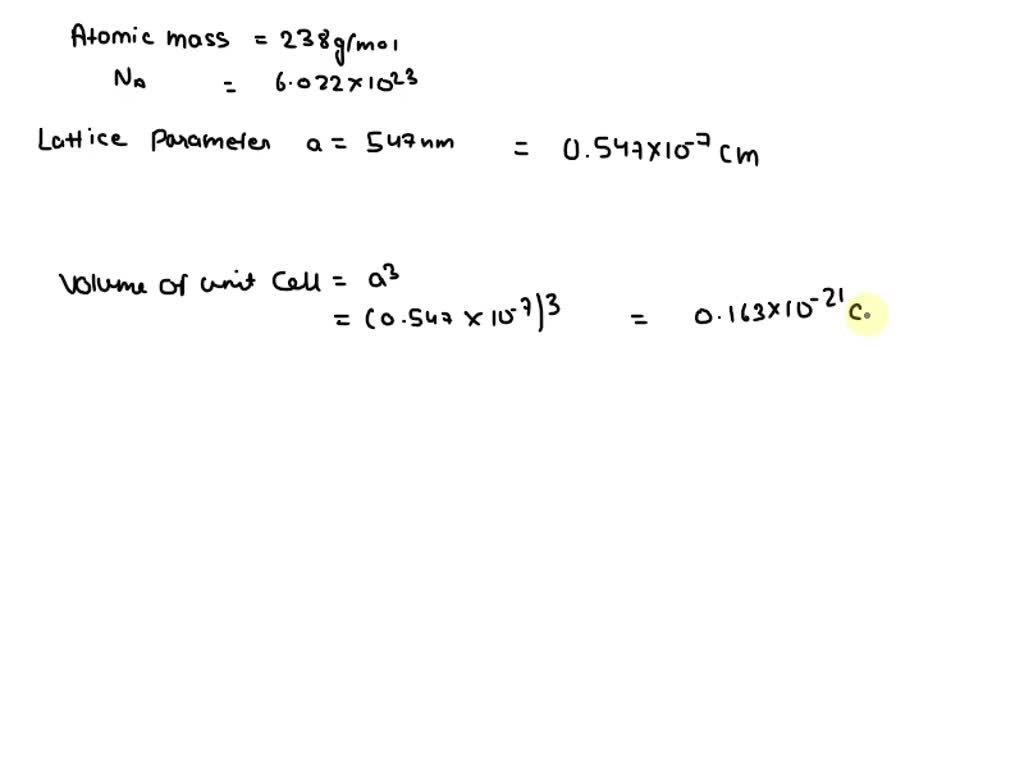 Atomic mass = 238g/mol
NA = 6.022×10²³
Lattice Parameter a = 547nm = 0.547×10⁻⁷ cm
Volume of unit Cell = a³
= (0.547 × 10⁻⁷)³ = 0.163×10⁻²¹ c.